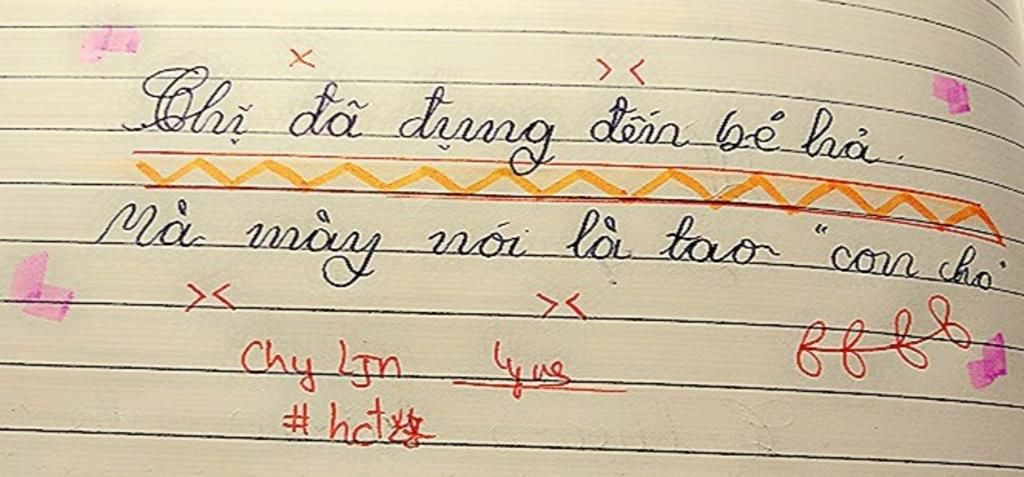 Chị đã đụng đến bé hả.
Mà mày nói là tao "con chó"
Chy Ljn
# hct